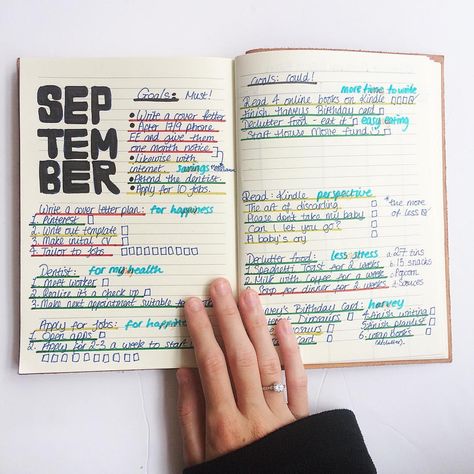 SEP
TEM
BER
Goals: Must!
• Write a cover letter
• After 17/9 phone
EE and give them
one month notice
• Likewise with
internet. savings
• Attend the dentist.
• Apply for 10 jobs.
Write a cover letter plan: for happiness
1. Pinterest
2. Write out template
3. Make initial CV
4. Tailor to jobs
Dentist: for my health
1. Meet worker
2. Realise it's a check up
3. Make next appointment suitable
Apply for jobs: for happin
1. Open apps
2. Apply for 2-3 a week to start
Goals: Could!
more time to write
Read 4 online books on Kindle
Finish Harvey's Birthday card
Declutter food - eat it easy eating
Start House Move fund
Read: Kindle perspective
The art of discarding
Please don't take my baby
Can I let you go?
A baby's cry
*the more
of less
Declutter food: less stress
1. Spaghetti Toast for 2 weeks
2. Milk with Coffee for a week
3. Soup for dinner for 2 weeks
a. 27 tins
b. 15 snacks
Popcorn
Sauces
vey's Birthday Card: harvey
Dinosaurs
osaurs
card
4. Finish writing
5. Finish playlist
6. Books